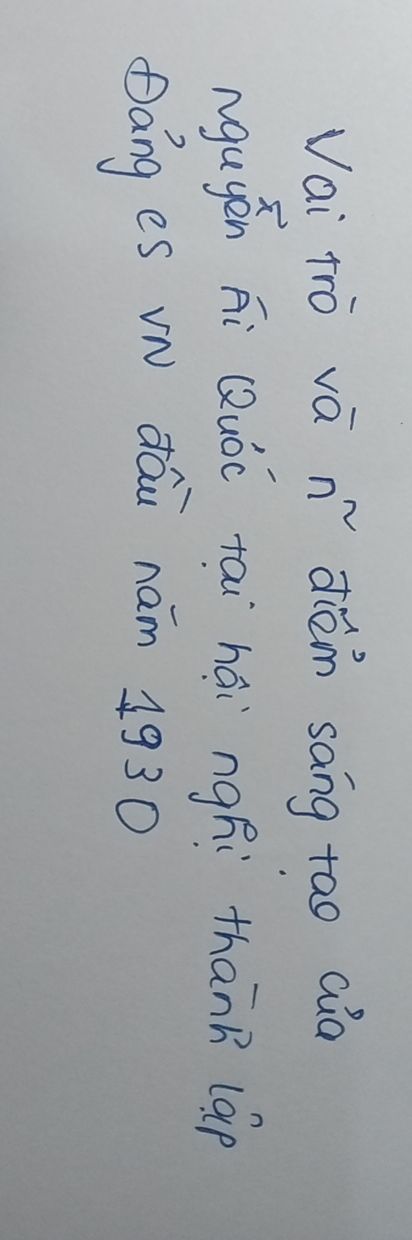 Vai trò và n~ điểm sáng tạo của
Nguyễn Ái Quốc tại hội nghị thành lập
Đảng CS VN đầu năm 1930